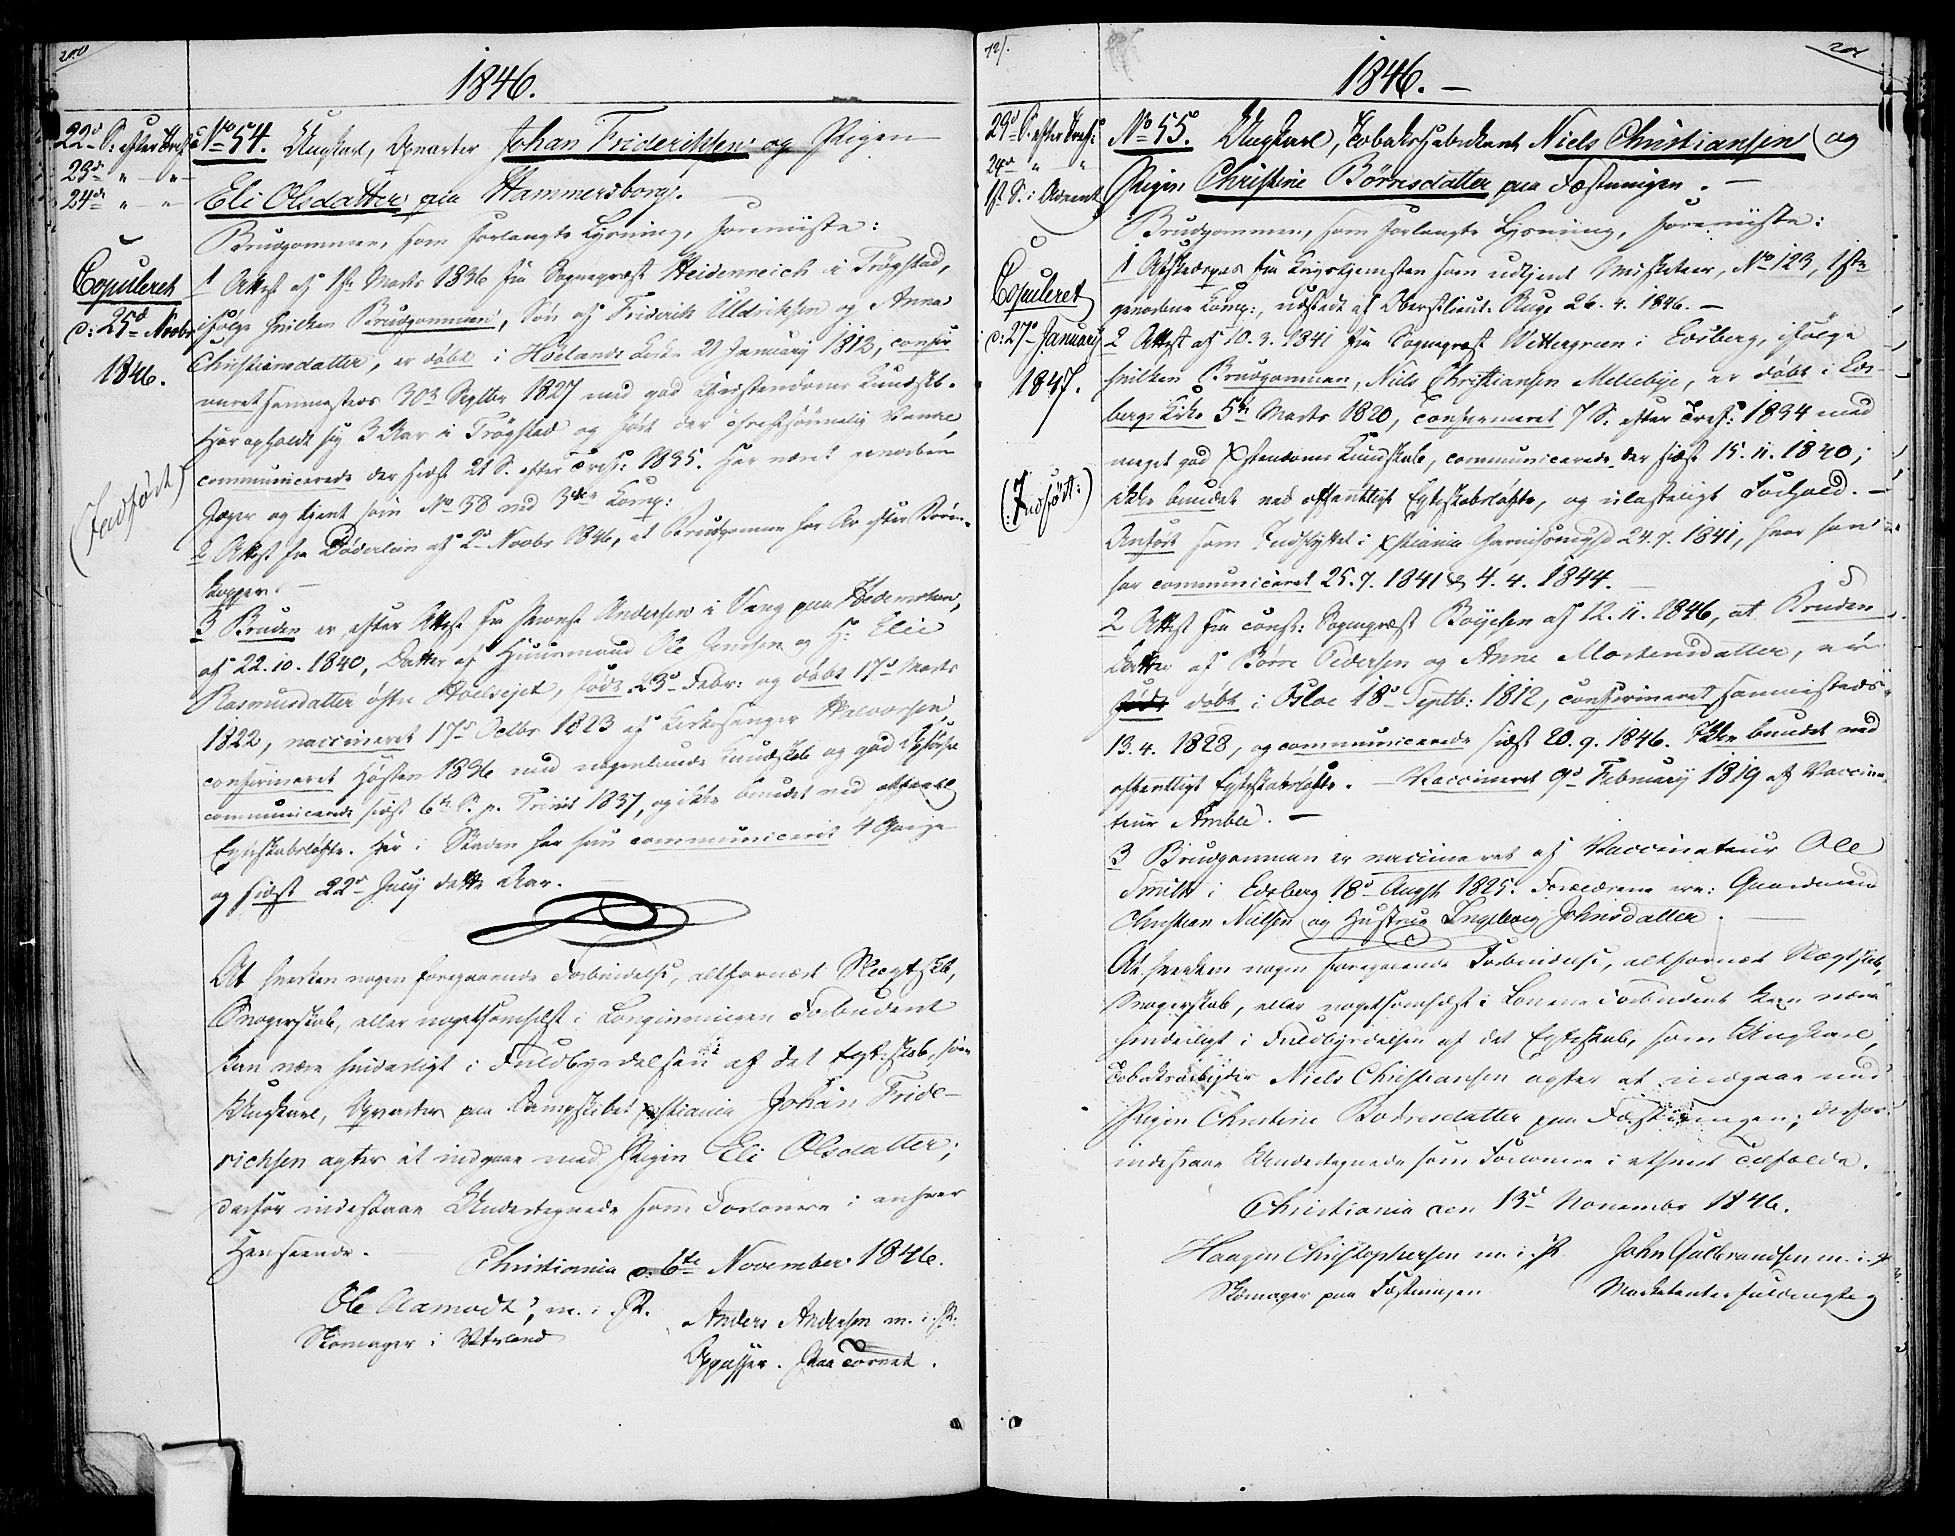 200
1846.
22d S. efter Tref:
23d " — " —
24de " — "
Copuleret
d: 25d Novbr
1846.
(Indført)
No 54. Ungkarl, Opvarter Johan Frideriksen og Pigen
Eli Olsdatter paa Hammersborg.
Brudgommen, som forlangte Lysning, foreviiste:
1 Attest af 1ste Marts 1836 fra Sognepræst Heidenreich i Trøgstad,
ifølge hvilken Brudgommen, Søn af Friderik Uldriksen og Anna
Christiansdatter, er døbt i Hølands Kirke 21 January 1812, confir
meret sammesteds 30d Septbr 1827 med god Christendoms Kundskab.
Har opholdt sig 3 Aar i Trøgstad og ført der
communicerede der sidst 21 S. efter Tref: 1835. Har været
Jæger og tjent som No 58 ved 3die Komp:
2 Attest fra Døderlein af 2d Novbr 1846, at Brudgommen har Ar efter Børne-
kopper. —
3 Bruden er efter Attest fra Provst Andersen i Vang paa Hedemarken,
af 22.10.1840, Datter af Huusmand Ole Jensen og H: Elie
Rasmusdatter født 23d Febr: og døbt 17d Marts
1822, vaccineret 17d Octbr 1823 af Kirkesanger Halvorsen
confirmeret Høsten 1836 med nogenlunde Kundskab og god Opførsel
communicerede sidst 6te S. p. Trinit 1837, og ikke bundet ved offentl
Egteskabsløfte. Her i Staden har hun communiceret 4 Gange
og sidst 22d July dette Aar. —
At hverken nogen foregaaende Forbindelse, altfornært Slegtskab,
Svogerskab, eller nogetsomhelst i Lovgivningen Forbudent
kan være hinderligt i Fuldbyrdelsen af det Egteskab, som
Ungkarl, Opvarter paa Dampskibet Xstiania Johan Fride-
richsen agter at indgaae med Pigen Eli Olsdatter;
derfor indestaae Undertegnede som Forlovere i enhver
Henseende. —
Christiania d: 6te November 1846.
Ole Aamodt, m. i. P.
Skomager i Vaterland
Anders Andersen m. i. P.
Oppasser. Paa Tornet.
721.
201
1846. —
23d S. efter Tref:
24de " "
1ste S. i Advent
Copuleret
d: 27d January
1847.
(: Indført:)
No 55. Ungkarl, Tobaksfabrikant Niels Christiansen og
Pigen Christine Børresdatter paa Fæstningen. —
Brudgommen, som forlangte Lysning, foreviiste:
1 Afskedspas fra Krigstjenesten som udtjent Musketeer, No 123, 1ste
Komp:, udstedt af Oberstlieut: Ruge 26.4.1846. —
2 Attest af 10.3.1841 fra Sognepræst Wettergreen i Edsberg, ifølge
hvilken Brudgommen, Niels Christiansen Mellebye, er døbt i Eds-
bergs Kirke 5te Marts 1820, confirmeret 7 S. efter Tref: 1834 med
meget god Xstendoms Kundskab, communicerede der sidst 15.11.1840;
ikke bundet ved offentligt Egteskabsløfte, og ulasteligt Forhold. —
Anført som Indflyttet i Xstiania Garnisonsmgd 24.7.1841, hvor han
har communiceret 25.7.1841 & 4.4.1844. —
2 Attest fra const: Sognepræst Boyesen af 12.11.1846, at Bruden
Datter af Børre Pedersen og Anne Mortensdatter, er
født døbt i Osloe 18d Septb: 1812, confirmeret sammesteds
13.4.1828, og communicerede sidst 20.9.1846. Ikke bundet ved
offentligt Egteskabsløfte. — Vaccineret 9d February 1819 af Vaccina-
teur Amble. —
3 Brudgommen er vaccineret af Vaccinateur Ole
Smith i Edsberg 18d Augst 1825. Forældrene ere: Gaardmand
Christian Nielsen og Hustrue Ingeborg Johnsdatter. —
At hverken nogen foregaaende Forbindelse, altfornært Slægtskab,
Svogerskab, eller nogetsomhelst i Lovene Forbudent kan være
hinderligt i Fuldbyrdelsen af det Egteskab, som Ungkarl,
Tobaksarbeyder Niels Christiansen agter at indgaae med
Pigen Christine Bodresdatter paa Fæstningen; derfor
indestaae Undertegnede som Forlovere i ethvert Tilfælde.
Christiania den 13d Novembr 1846.
Haagen Christophersen m. i. P.
Skomager paa Fæstningen
John Gulbrandsen m. i. P.
Marketenterfuldmægtig